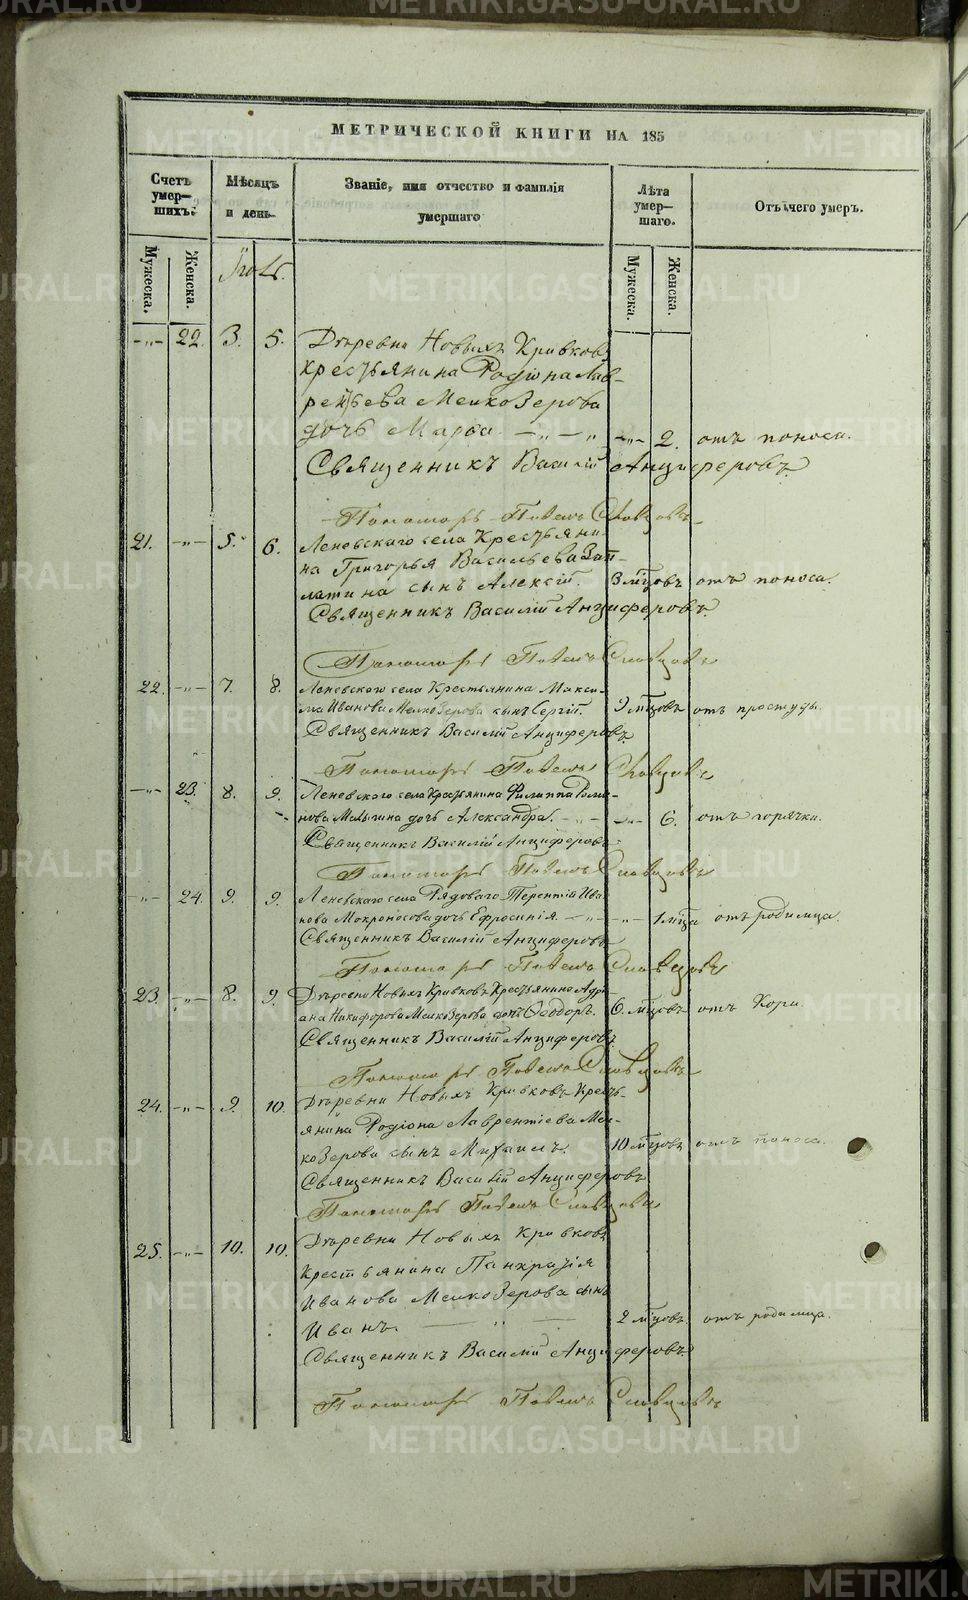 METRIKI.GASO-URAL.RU
МЕТРИЧЕСКОЙ КНИГИ НА 185
Счетъ умер-шихъ.
Мѣсяцъ и день.
Званіе, имя отчество и фамилія умершаго
Лѣта умер-шаго.
Отъ чего умеръ.
Мужеска.
Женска.
Мужеска.
Женска.
-„- 22. 3. 5. Деревни Новыхъ Кривковъ
крестьянина Родіона Лав-
рентьева Мелкозерова
дочь Марѳа. -„- 2. отъ поноса.
Священникъ Василій Анциферовъ
Пономарь Павелъ Словцовъ
21. -„- 5. 6. Леневскаго села Крестьяни-
на Григорья Васильева Зап-
латина сынъ Алексій. 3 мѣсцовъ отъ поноса.
Священникъ Василій Анциферовъ
Пономарь Павелъ Словцовъ
22. -„- 7. 8. Леневскаго села Крестьянина Макси-
ма Иванова Мелкозерова сынъ Сергій. 9 мѣсцовъ отъ простуды.
Священникъ Василій Анциферовъ
Пономарь Павелъ Словцовъ
-„- 23. 8. 9. Леневскаго села Крестьянина Филиппа Рома-
нова дочь Александра. -„- 6. отъ горячки.
Священникъ Василій Анциферовъ
Пономарь Павелъ Словцовъ
-„- 24. 9. 9. Леневскаго села Рядоваго Терентій Ива-
нова Мокроносова дочь Ефросинія. -„- 1 мѣсца отъ родимца.
Священникъ Василій Анциферовъ
Пономарь Павелъ Словцовъ
23. -„- 8. 9. Деревни Новыхъ Кривковъ Крестьянина Адрі-
ана Никифорова Мелкозерова сынъ Ѳеодоръ. 6. мѣсцовъ отъ Кори.
Священникъ Василій Анциферовъ
Пономарь Павелъ Словцовъ
24. -„- 9. 10. Деревни Новыхъ Кривковъ Кресть-
янина Родіона Лаврентіева Мел-
козерова сынъ Михаилъ. 10 мѣсцовъ отъ поноса.
Священникъ Василій Анциферовъ
Пономарь Павелъ Словцовъ
25. -„- 10. 10. Деревни Новыхъ Кривковъ
Крестьянина Панкратія
Иванова Мелкозерова сынъ
Иванъ. 2 мѣсцовъ отъ родимца.
Священникъ Василій Анциферовъ
Пономарь Павелъ Словцовъ